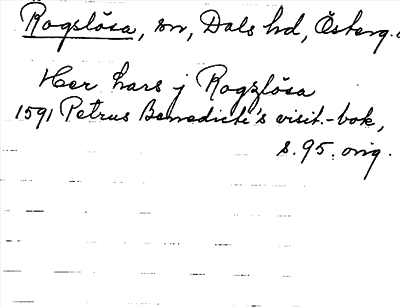 Rogslösa, sn, Dals hd, Österg.
Her hars j Rogzlösa
1591 Petrus Benedicti's visit.-bok,
s. 95. orig.